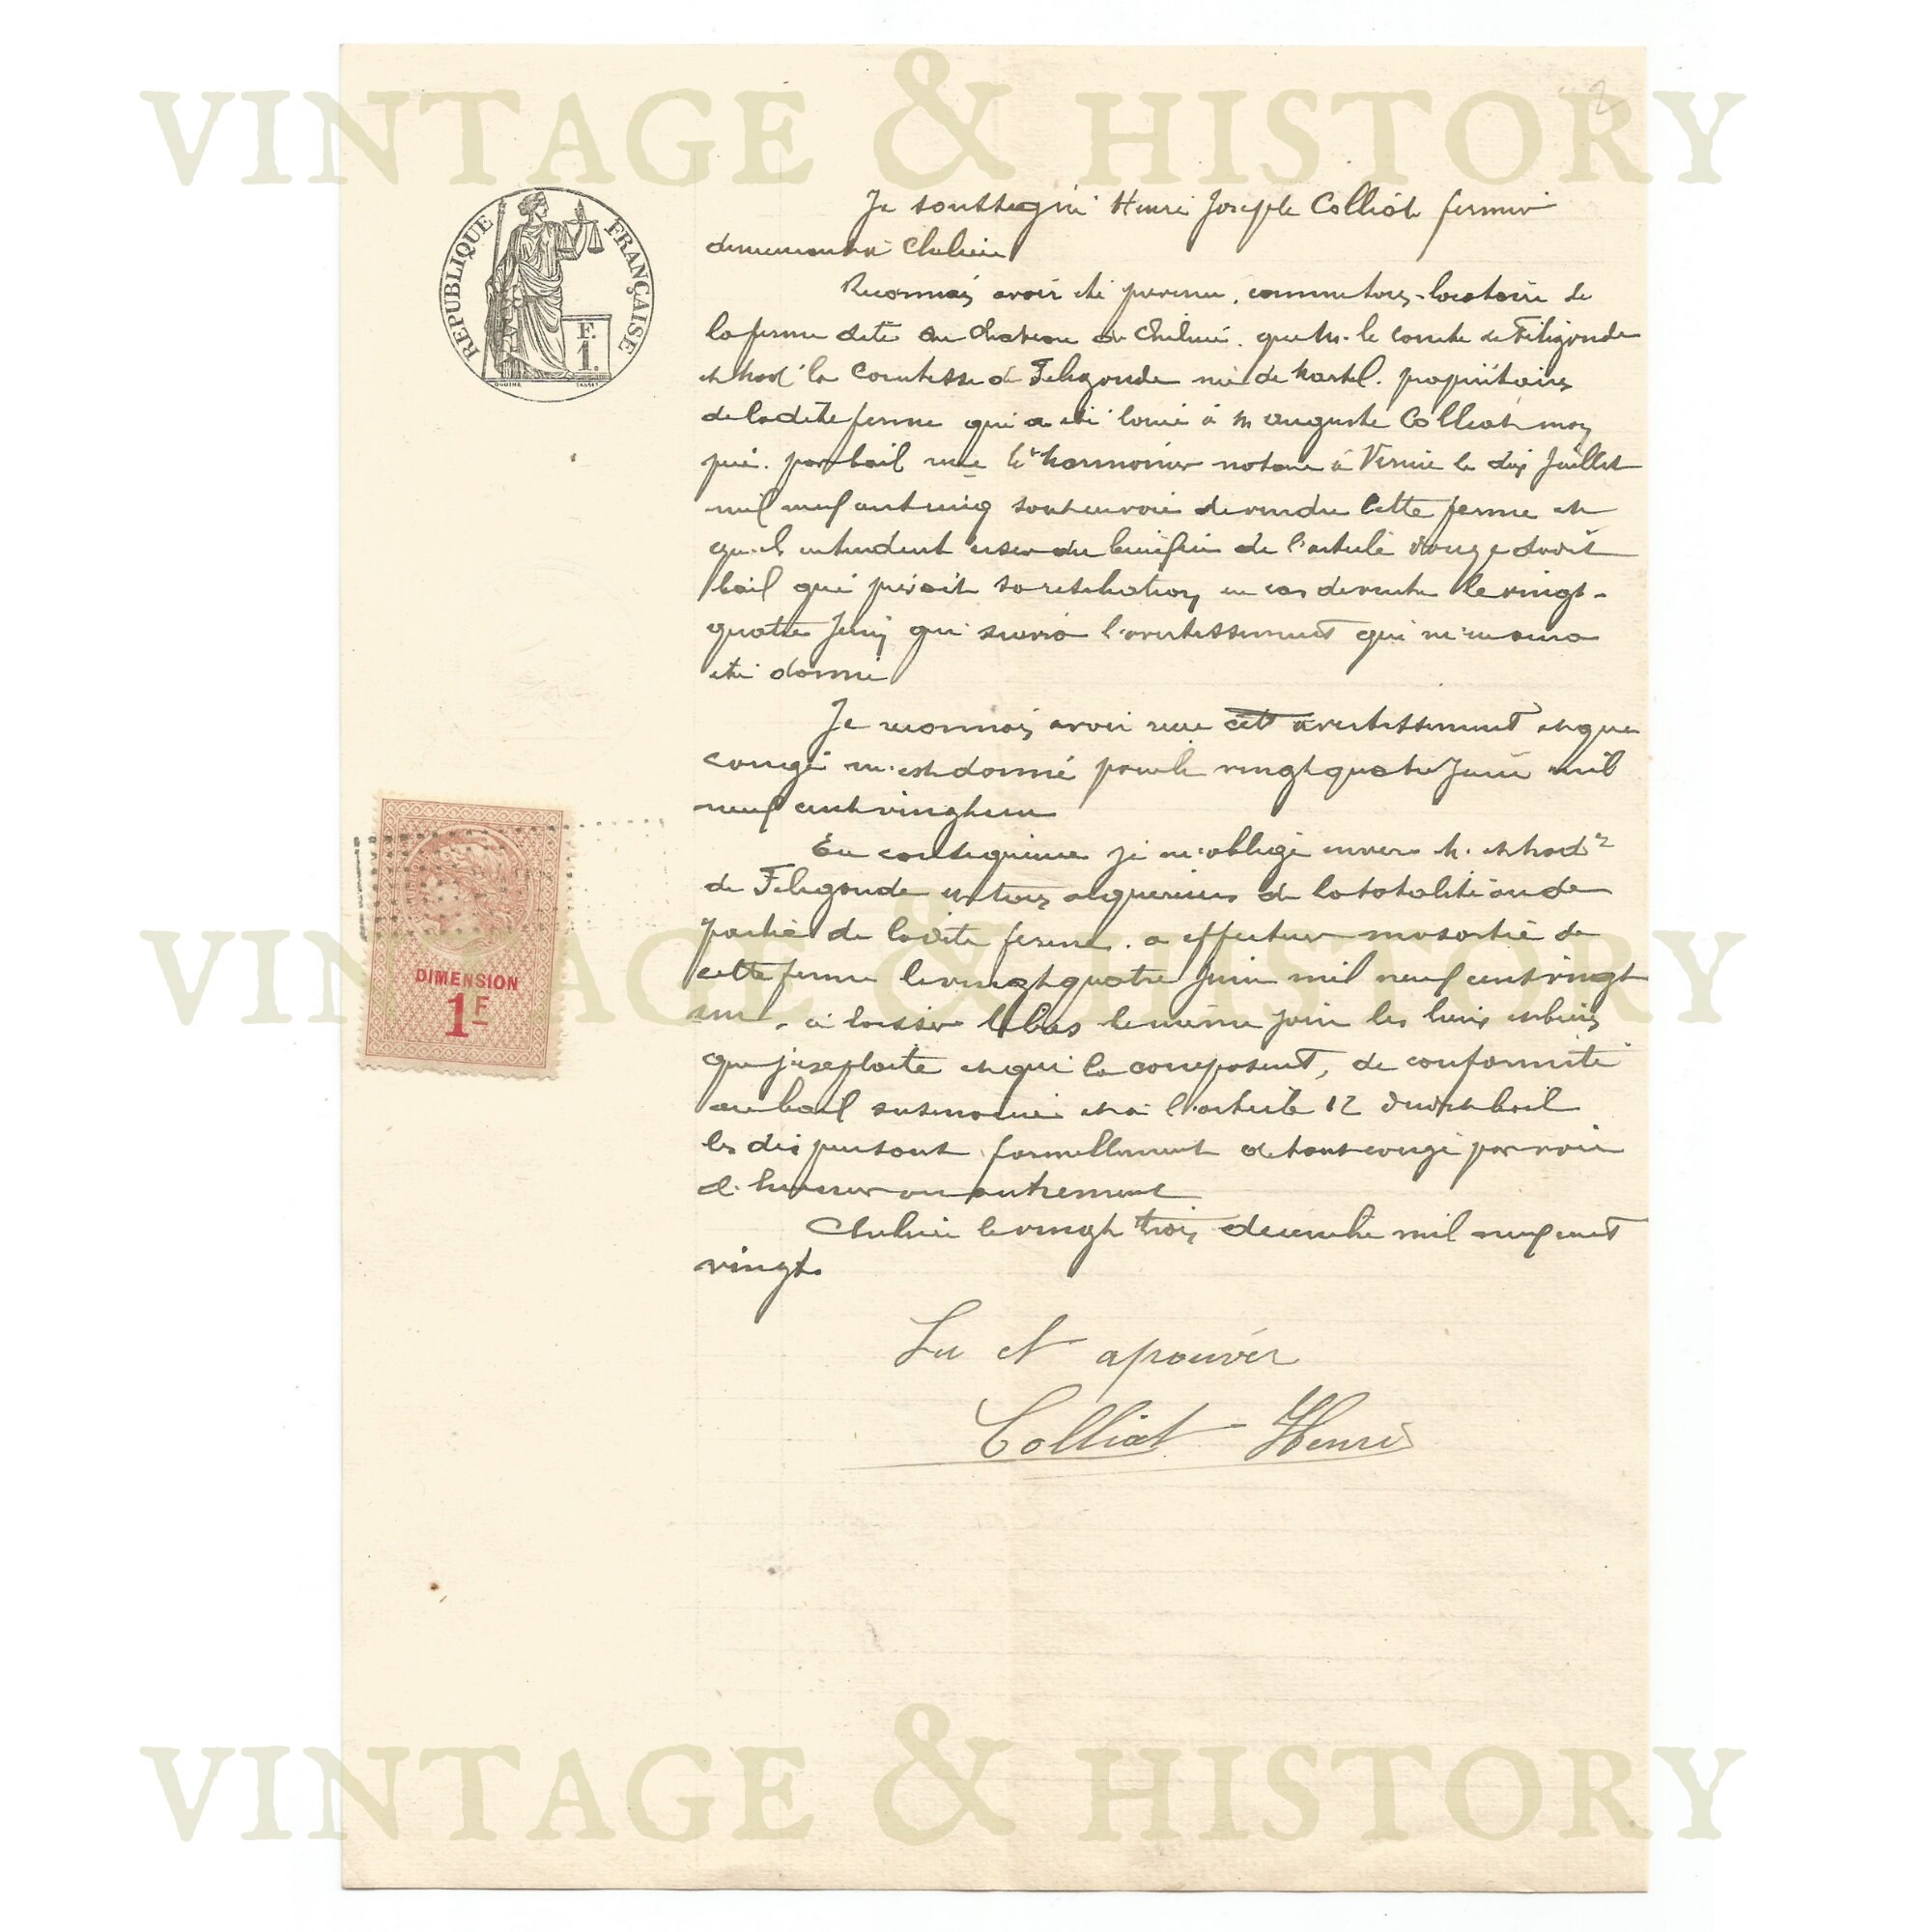 VINTAGE & HISTORY
2
REPUBLIQUE FRANÇAISE
F.
1.
OUDINÉ TASSET
Je soussigné Henri Joseph Colliot fermier
demeurant à
Reconnais avoir été prevenu, comme tous locataire de
la ferme dite du Chateau de que M. le comte de Feligonde
et Mad la Comtesse de Feligonde née de propriétaires
de la dite ferme qui a été louée à M Auguste Colliot mon
père. par bail notaire à Vernie le dix Juillet
mil neuf cent cinq sont en voie de vendre cette ferme et
qu'il entendent user du bénéfice de l'article douze dudit
bail qui prévoit sa resiliation en cas de vente le vingt-
quatre Juin qui suivra l'avertissement qui m'en aura
été donné
Je reconnais avoir reçu cet avertissement et que
congé m'est donné pour le vingt quatre Juin mil
neuf cent vingt un
En consequence je m'oblige envers M. et Mad
de Feligonde et tous acquereurs de la totalité ou de
partie de la dite ferme. a effectuer ma sortie de
cette ferme le vingt quatre Juin mil neuf cent vingt
un, à laisser libres le même jour les lieux et biens
que j'exploite et qui la composent, de conformité
au bail susenoncé et à l'article 12 dudit bail
les dispensant formellement de tout congé par voie
d'huissier ou autrement
le vingt trois decembre mil neuf cent
vingt.
Lu et aprouver
Colliot Henri
DIMENSION
1F
VINTAGE & HISTORY
VINTAGE & HISTORY